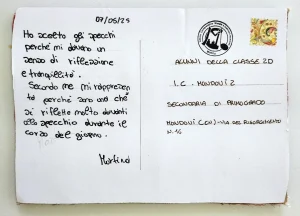 07/05/25
Ho scelto gli specchi
perché mi davano un
senso di riflessione
e tranquillità.
Secondo me mi rappresen
ta perché sono una che
si riflette molto davanti
allo specchio durante il
corso del giorno.
Martina
ALUNNI DELLA CLASSE 2D
I.C. MONDOVÌ 2
SECONDARIA DI PRIMO GRADO
MONDOVÌ (CN) - VIA DEL RISORGIMENTO
N.